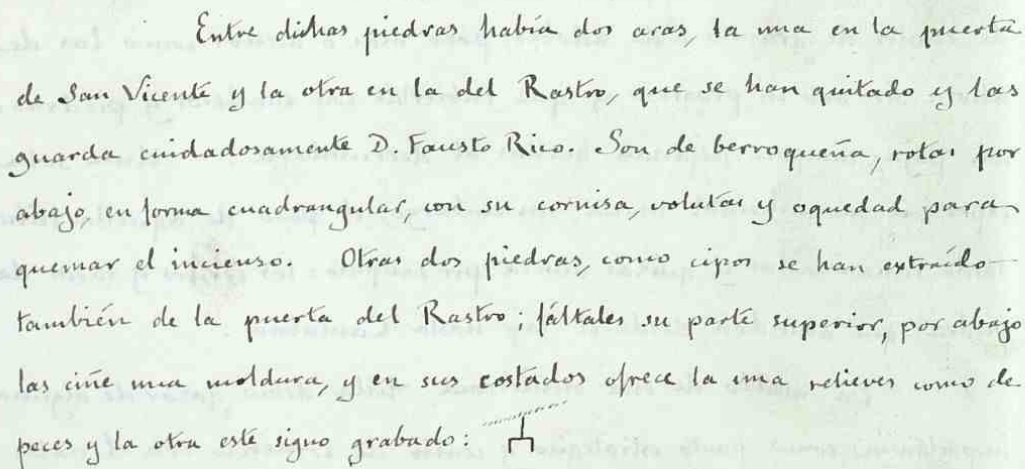 Entre dichas piedras había dos aras, la una en la puerta
de San Vicente y la otra en la del Rastro, que se han quitado y las
guarda cuidadosamente D. Fausto Rico. Son de berroqueña, rotas por
abajo, en forma cuadrangular, con su cornisa, volutas y oquedad para
quemar el incienso. Otras dos piedras, como cipos se han extraído
también de la puerta del Rastro; fáltales su parte superior, por abajo
las ciñe una moldura, y en sus costados ofrece la una relieves como de
peces y la otra este signo grabado: